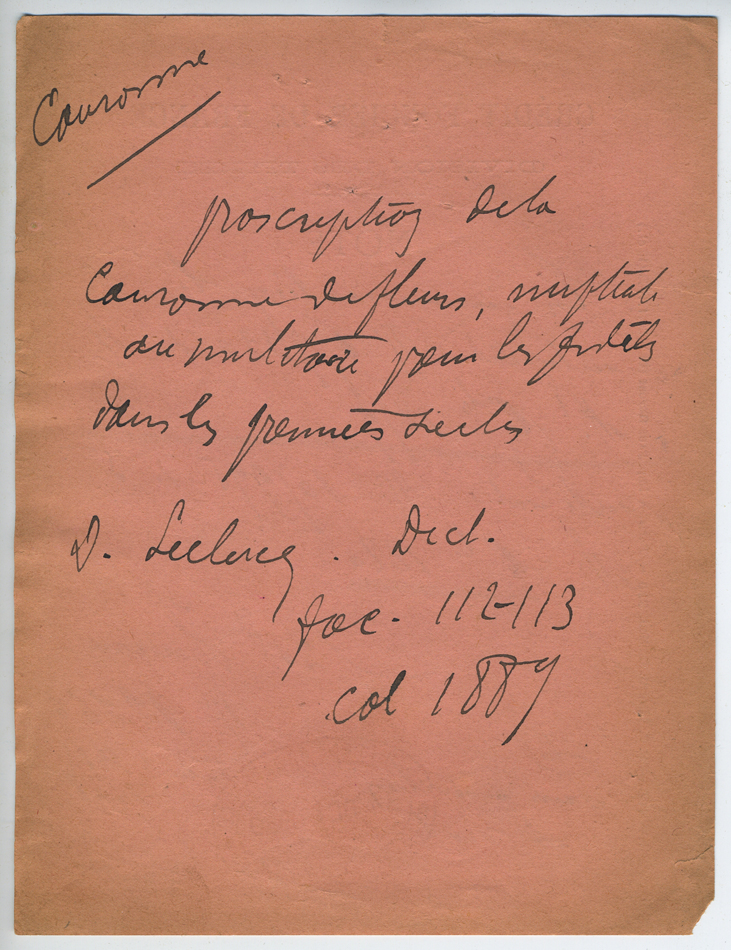 Couronne
proscription de la
Couronne de fleurs, nuptiale
ou militaire pour les fidèles
dans les premiers siècles
D. Leclercq. Dict.
fasc. 112-113
col 1889